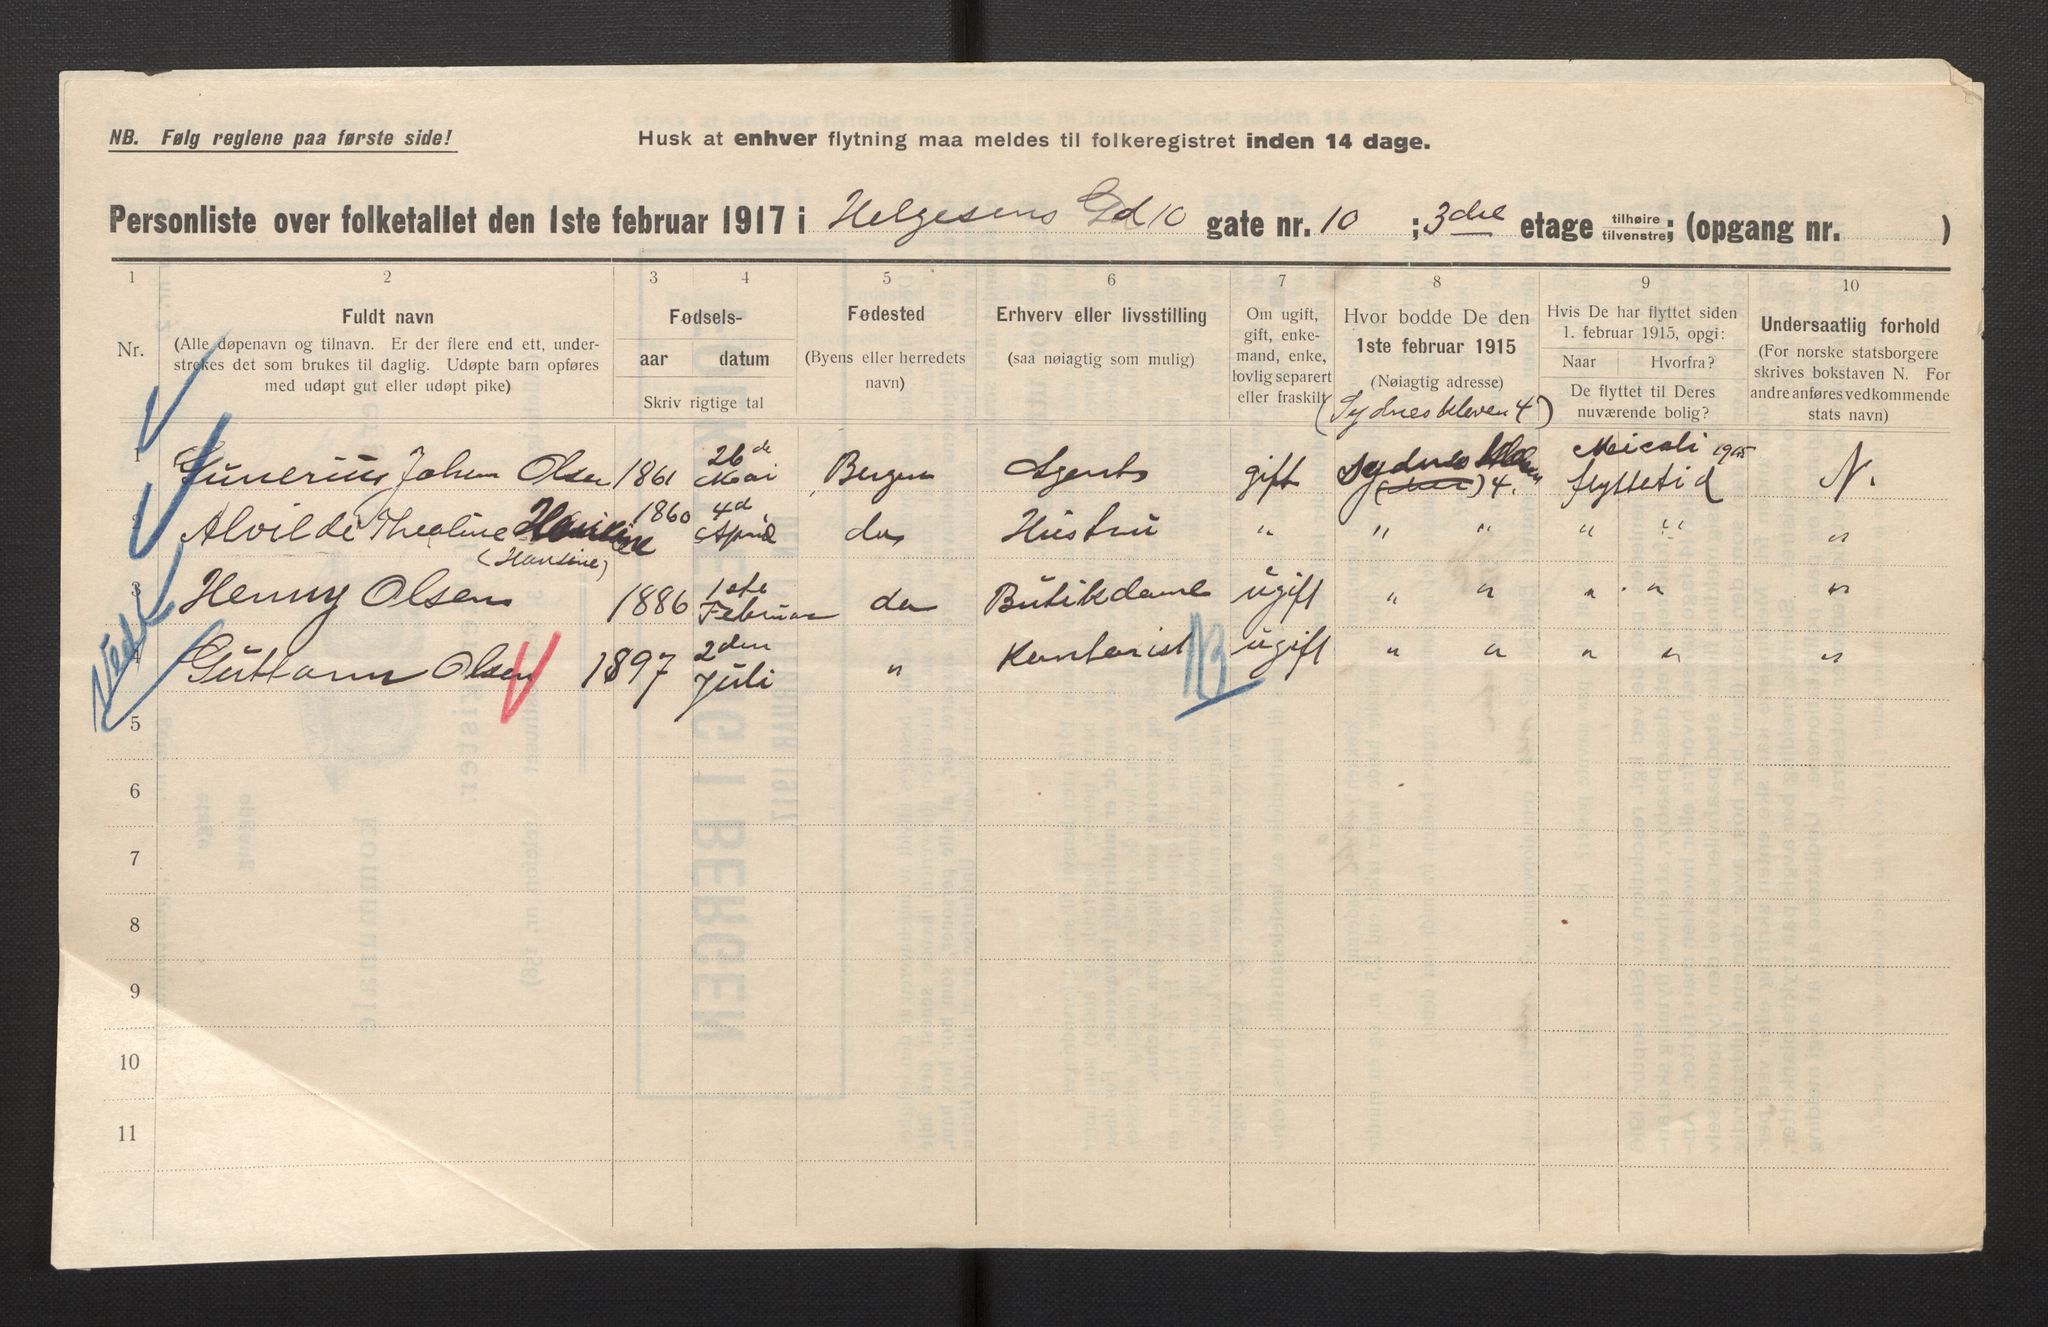 NB. Følg reglene paa første side!
Husk at enhver flytning maa meldes til folkeregistret inden 14 dage.
Personliste over folketallet den 1ste februar 1917 i Helgesens Gd 10 gate nr. 10 ; 3die etage tilhøire tilvenstre; (opgang nr. )
1 2 3 4 5 6 7 8 9 10
Nr.
Fuldt navn
(Alle døpenavn og tilnavn. Er der flere end ett, under-
strekes det som brukes til daglig. Udøpte barn opføres
med udøpt gut eller udøpt pike)
Fødsels-
aar datum
Skriv rigtige tal
Fødested
(Byens eller herredets
navn)
Erhverv eller livsstilling
(saa nøiagtig som mulig)
Om ugift,
gift, enke-
mand, enke,
lovlig separert
eller fraskilt
Hvor bodde De den
1ste februar 1915
(Nøiagtig adresse)
(Sydneskleven 4)
Hvis De har flyttet siden
1. februar 1915, opgi:
Naar Hvorfra?
De flyttet til Deres
nuværende bolig?
Undersaatlig forhold
(For norske statsborgere
skrives bokstaven N. For
andre anføres vedkommende
stats navn)
1 Gunerius Johan Olsen 1861 26de Mai Bergen Agent gift Sydnes 4. flyttetid 1915 N.
2 Alvilde Thealine (Hansine) 1860 4d April do Hustru " " " " " "
3 Henny Olsen 1886 1ste Februar do Butikdame ugift " " " " "
4 Guttorm Olsen 1897 2den Juli " Kontorist NB ugift " " " " "
5
6
7
8
9
10
11